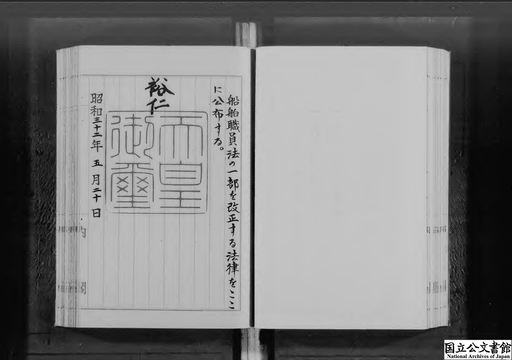 船舶職員法の一部を改正する法律をここ
に公布する。
裕仁
天皇
御璽
昭和三十二年五月二十日
内閣
国立公文書館
National Archives of Japan